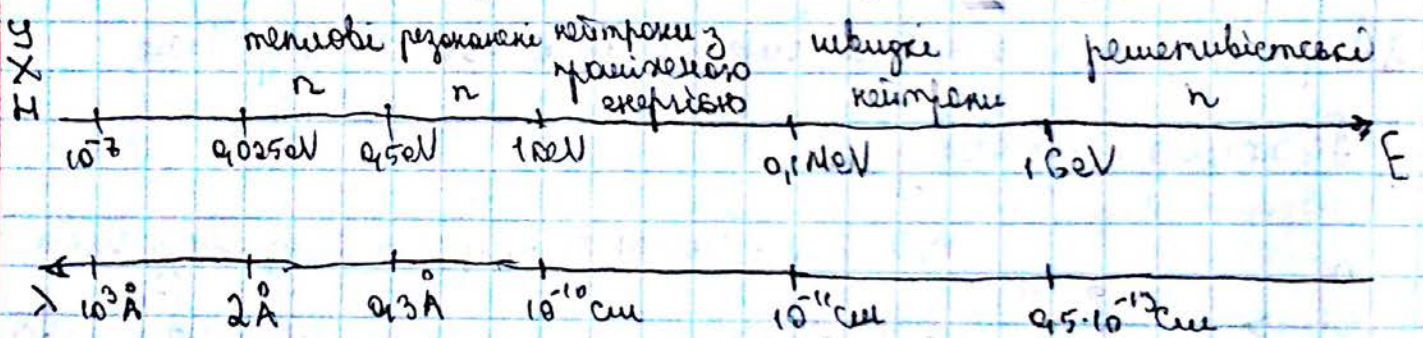 УХН
теплові n
резонансні n
нейтрони з проміжною енергією
швидкі нейтрони
релятивістські n
10⁻⁷ 0,025eV 0,5eV 1 keV 0,1 MeV 1 GeV E
λ 10³Å 2Å 0,3Å 10⁻¹⁰ см 10⁻¹¹ см 0,5·10⁻¹³ см